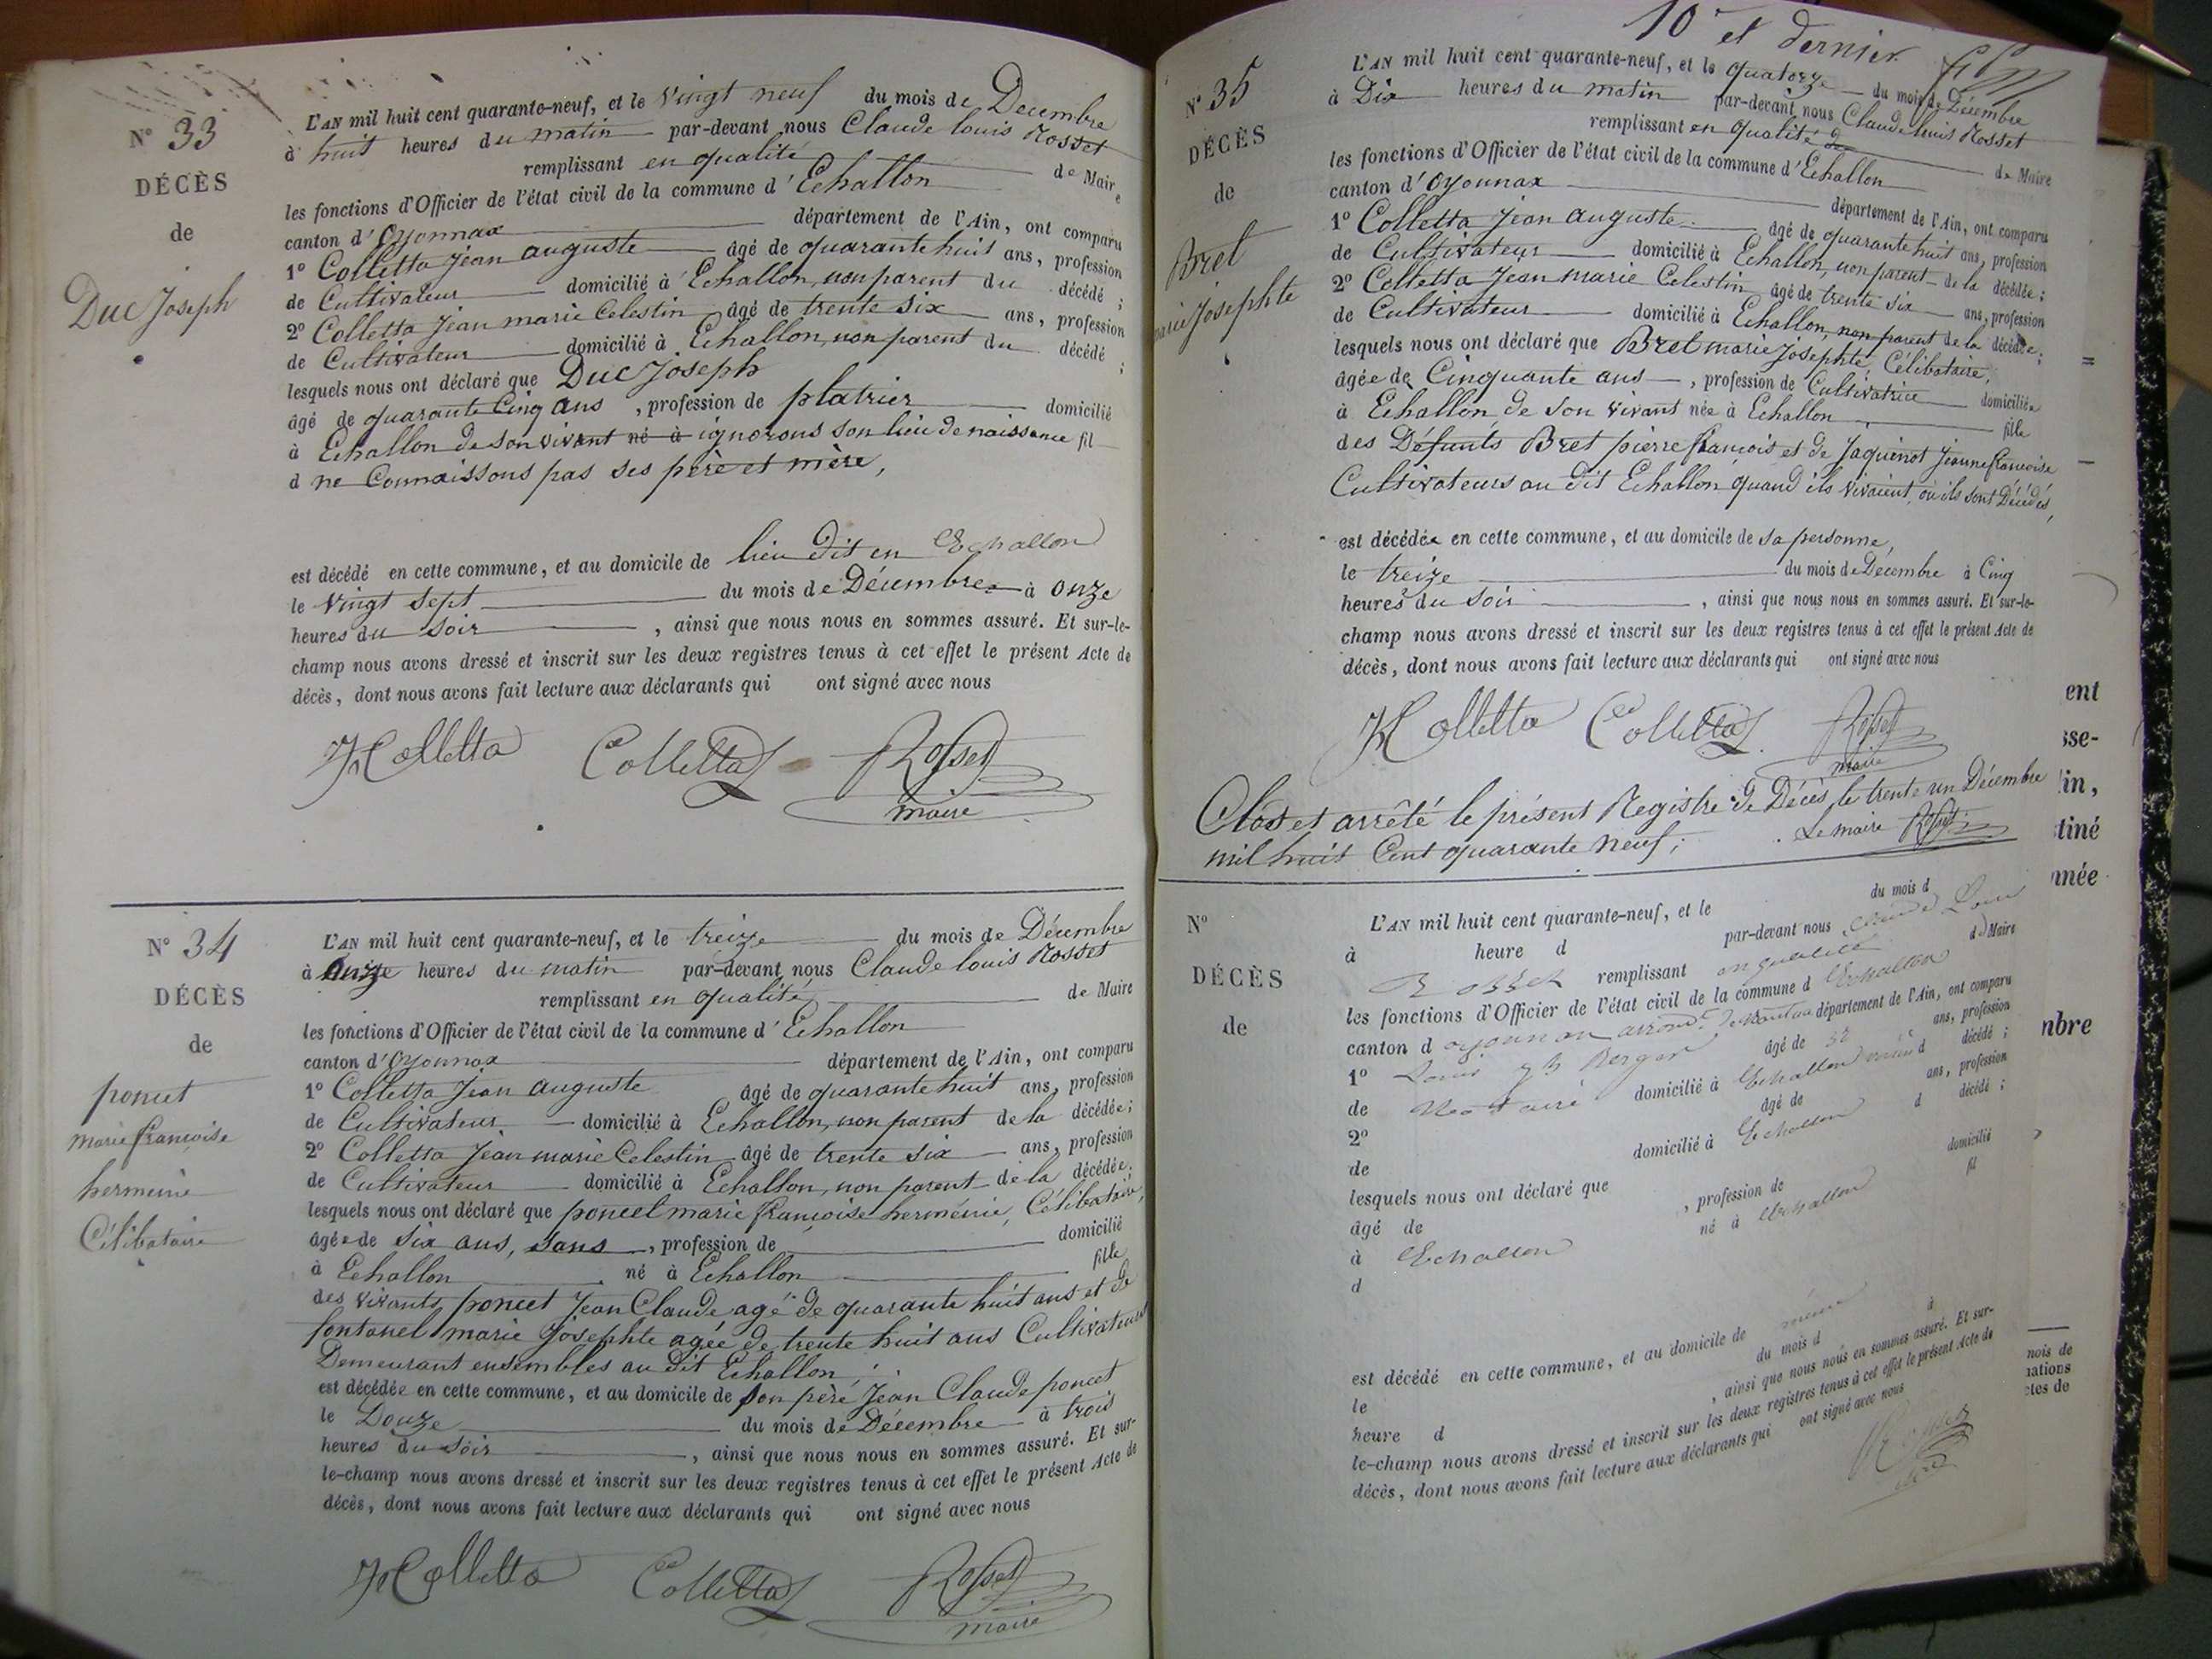 N° 33
DÉCÈS
de
Duc Joseph
L'AN mil huit cent quarante-neuf, et le vingt neuf du mois de Decembre
à huit heures du matin par-devant nous Claude louis Rosset
remplissant en qualité de Maire
les fonctions d'Officier de l'état civil de la commune d'Echallon
canton d'Oyonnax département de l'Ain, ont comparu
1° Colletta Jean auguste âgé de quarante huit ans, profession
de Cultivateur domicilié à Echallon, non parent du décédé ;
2° Colletta Jean marie Celestin âgé de trente six ans, profession
de Cultivateur domicilié à Echallon, non parent du décédé ;
lesquels nous ont déclaré que Duc Joseph
âgé de quarante Cinq ans , profession de platrier domicilié
à Echallon de son vivant né à ignorons son lieu de naissance fil
d ne Connaissons pas ses père et mère,
est décédé en cette commune, et au domicile de lieu dit en Echallon
le vingt sept du mois de Décembre à onze
heures du soir , ainsi que nous nous en sommes assuré. Et sur-le-
champ nous avons dressé et inscrit sur les deux registres tenus à cet effet le présent Acte de
décès, dont nous avons fait lecture aux déclarants qui ont signé avec nous
Colletta Colletta Rosset
maire
N° 34
DÉCÈS
de
poncet
marie françoise
herménie
Célibataire
L'AN mil huit cent quarante-neuf, et le treize du mois de Décembre
à onze heures du matin par-devant nous Claude louis Rosset
remplissant en qualité de Maire
les fonctions d'Officier de l'état civil de la commune d'Echallon
canton d'Oyonnax département de l'Ain, ont comparu
1° Colletta Jean auguste âgé de quarante huit ans, profession
de Cultivateur domicilié à Echallon, non parent de la décédée ;
2° Colletta Jean marie Celestin âgé de trente six ans, profession
de Cultivateur domicilié à Echallon, non parent de la décédée ;
lesquels nous ont déclaré que poncet marie françoise herménie, Célibataire,
âgée de six ans, sans , profession de domicilié
à Echallon né à Echallon fille
des vivants poncet Jean Claude agé de quarante huit ans et de
fontanel marie Josephte agée de trente huit ans Cultivateurs
Demeurant ensembles au dit Echallon,
est décédée en cette commune, et au domicile de son père Jean Claude poncet
le Douze du mois de Décembre à trois
heures du soir , ainsi que nous nous en sommes assuré. Et sur-
le-champ nous avons dressé et inscrit sur les deux registres tenus à cet effet le présent Acte de
décès, dont nous avons fait lecture aux déclarants qui ont signé avec nous
Colletta Colletta Rosset
maire
10 et dernier
N° 35
DÉCÈS
de
Bret
marie Josephte
L'AN mil huit cent quarante-neuf, et le quatorze du mois de Décembre
à Dix heures du matin par-devant nous Claude louis Rosset
remplissant en qualité de de Maire
les fonctions d'Officier de l'état civil de la commune d'Echallon
canton d'Oyonnax département de l'Ain, ont comparu
1° Colletta Jean auguste âgé de quarante huit ans, profession
de Cultivateur domicilié à Echallon, non parent de la décédée ;
2° Colletta Jean marie Celestin âgé de trente six ans, profession
de Cultivateur domicilié à Echallon, non parent de la décédée ;
lesquels nous ont déclaré que Bret marie Josephte, Célibataire,
âgée de Cinquante ans , profession de Cultivatrice domiciliée
à Echallon de son vivant née à Echallon fille
des Défunts Bret pierre françois et de Jaquenot Jeanne françoise
Cultivateurs au dit Echallon quand ils vivaient, où ils sont Décédés,
est décédée en cette commune, et au domicile de sa personne,
le treize du mois de Décembre à Cinq
heures du soir , ainsi que nous nous en sommes assuré. Et sur-le-
champ nous avons dressé et inscrit sur les deux registres tenus à cet effet le présent Acte de
décès, dont nous avons fait lecture aux déclarants qui ont signé avec nous
Colletta Colletta Rosset
maire
Clos et arrêté le présent Registre de Décès le trente un Décembre
mil huit Cent quarante neuf ; Le maire Rosset
N°
DÉCÈS
de
L'AN mil huit cent quarante-neuf, et le du mois d
à heure d par-devant nous Claude Louis
Rosset remplissant en qualité de Maire
les fonctions d'Officier de l'état civil de la commune d Echallon
canton d oyonnax arrond.t de Nantua département de l'Ain, ont comparu
1° Louis Berger âgé de 32 ans, profession
de Notaire domicilié à Echallon d décédé ;
2° âgé de ans, profession
de domicilié à Echallon d décédé ;
lesquels nous ont déclaré que
âgé de , profession de domicilié
à Echallon né à Echallon fil
d
est décédé en cette commune, et au domicile de
le du mois d à
heure d , ainsi que nous nous en sommes assuré. Et sur-
le-champ nous avons dressé et inscrit sur les deux registres tenus à cet effet le présent Acte de
décès, dont nous avons fait lecture aux déclarants qui ont signé avec nous
Rosset
ent
sse-
in,
tiné
nnée
nbre
mois de
nations
ctes de